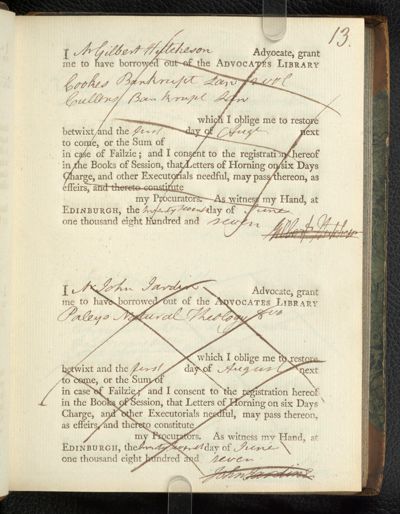 13.
I Mr Gilbert Hutcheson Advocate, grant
me to have borrowed out of the ADVOCATES LIBRARY
Cookes Bankrupt Law 2 vol
Cullens Bankrupt Law
which I oblige me to restore
betwixt and the first day of Augt next
to come, or the Sum of
in case of Failzie; and I consent to the registration hereof
in the Books of Session, that Letters of Horning on six Days
Charge, and other Executorials needful, may pass thereon, as
effeirs, and thereto constitute
my Procurators. As witness my Hand, at
EDINBURGH, the twenty second day of June
one thousand eight hundred and seven
I Mr John Jardine Advocate, grant
me to have borrowed out of the ADVOCATES LIBRARY
Paleys Natural Theology 8vo
which I oblige me to restore
betwixt and the first day of August next
to come, or the Sum of
in case of Failzie; and I consent to the registration hereof
in the Books of Session, that Letters of Horning on six Days
Charge, and other Executorials needful, may pass thereon,
as effeirs, and thereto constitute
my Procurators. As witness my Hand, at
EDINBURGH, the twenty second day of June
one thousand eight hundred and seven
John Jardine